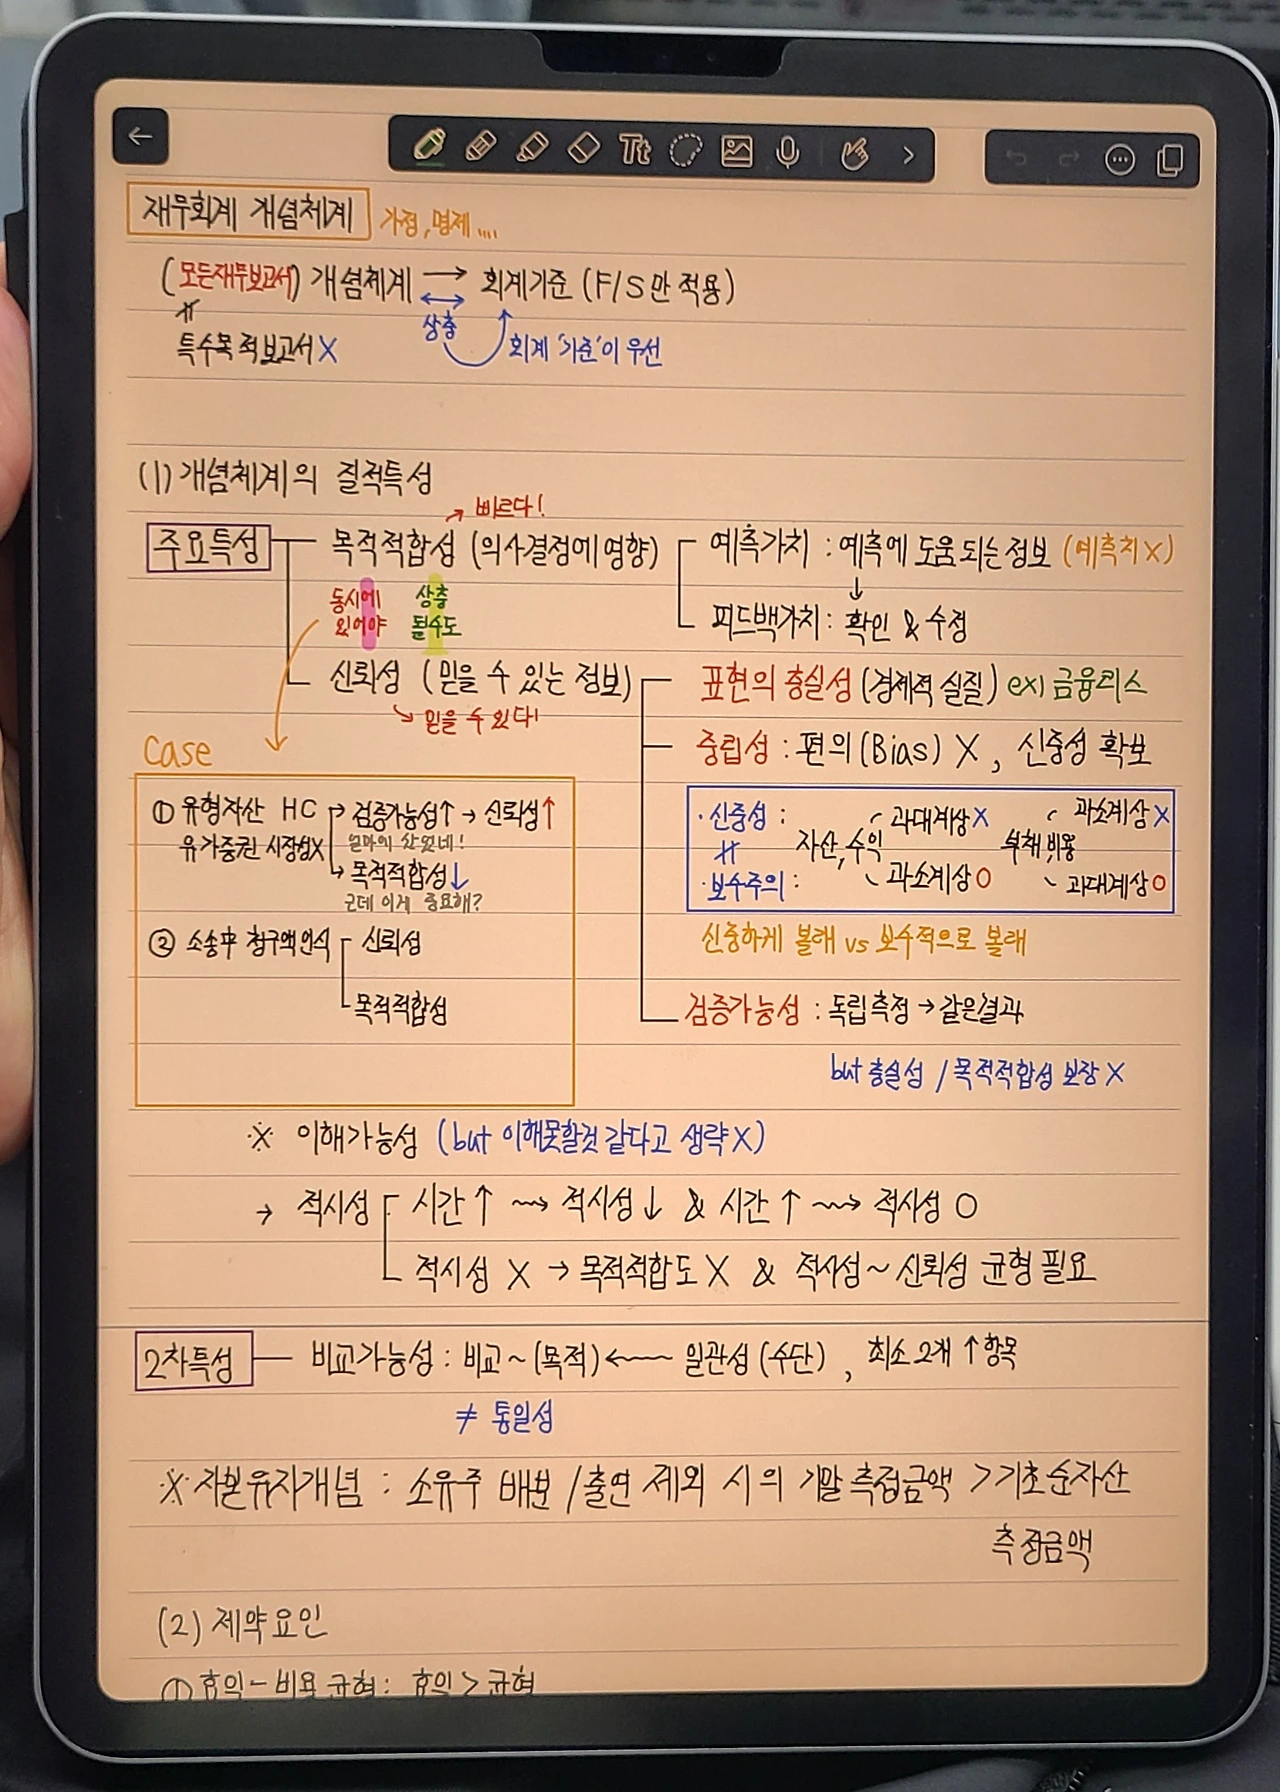 Tt
재무회계 개념체계 가정, 명제 ....
(모든재무보고서) 개념체계 → 회계기준 (F/S만 적용)
특수목적보고서X 상충 회계 '기준'이 우선
(1) 개념체계의 질적특성
빠르다!
주요특성 목적적합성 (의사결정에 영향) 예측가치 : 예측에 도움 되는 정보 (예측치 X)
동시에 있어야 상충 될수도 피드백가치 : 확인 & 수정
신뢰성 (믿을 수 있는 정보) 표현의 충실성 (경제적 실질) ex) 금융리스
믿을 수 있다!
중립성 : 편의 (Bias) X , 신중성 확보
Case
① 유형자산 HC → 검증가능성↑ → 신뢰성↑
유가증권 시장성X 얼마에 샀었네!
→ 목적적합성↓
근데 이게 중요해?
② 소송中 청구액 인식 신뢰성
목적적합성
· 신중성 : 자산, 수익 과대계상X 부채, 비용 과소계상X
· 보수주의 : 과소계상O 과대계상O
신중하게 볼래 vs 보수적으로 볼래
검증가능성 : 독립 측정 → 같은결과
but 충실성 / 목적적합성 보장 X
※ 이해가능성 (but 이해못할것 같다고 생략X)
→ 적시성 시간↑ ⇝ 적시성↓ & 시간↑ ⇝ 적시성 O
적시성 X → 목적적합도 X & 적시성 ~ 신뢰성 균형 필요
2차특성 비교가능성 : 비교 ~ (목적) ← 일관성 (수단) , 최소 2개 ↑ 항목
≠ 통일성
※ 자본유지개념 : 소유주 배분 / 출연 제외 시의 기말 측정금액 > 기초 순자산
측정금액
(2) 제약요인
① 효익 - 비용 균형 : 효익 > 균형